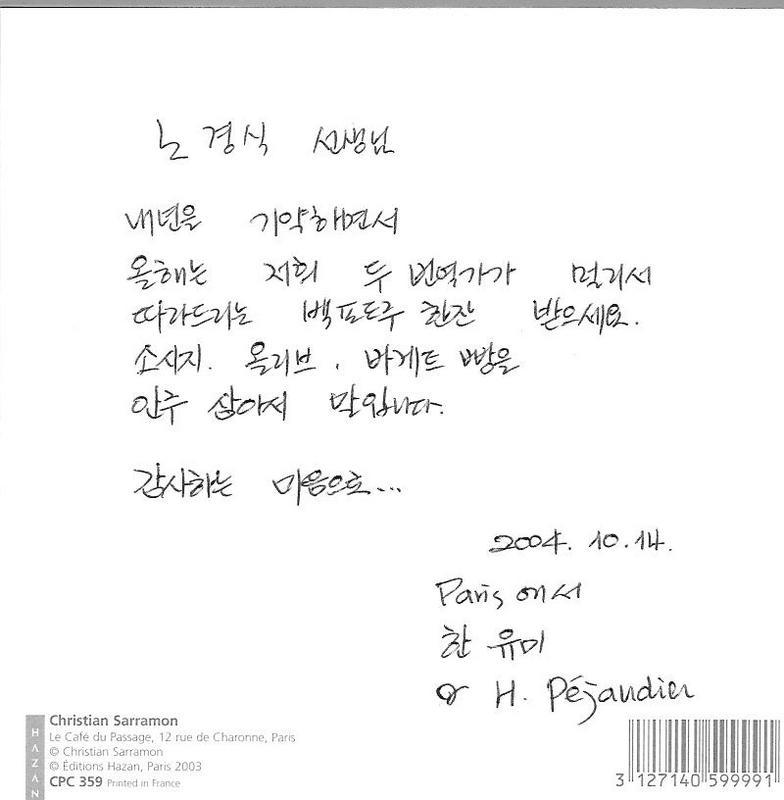 노 경식 선생님
내년을 기약하면서
올해는 저희 두 번역가가 멀리서
따라드리는 백포도주 한잔 받으세요.
소시지. 올리브, 바게트 빵을
안주 삼아서 말입니다.
감사하는 마음으로...
2004. 10. 14.
Paris에서
한 유미
& H. Péjaudier
HAZAN
Christian Sarramon
Le Café du Passage, 12 rue de Charonne, Paris
© Christian Sarramon
© Éditions Hazan, Paris 2003
CPC 359 Printed in France
3 127140 599991